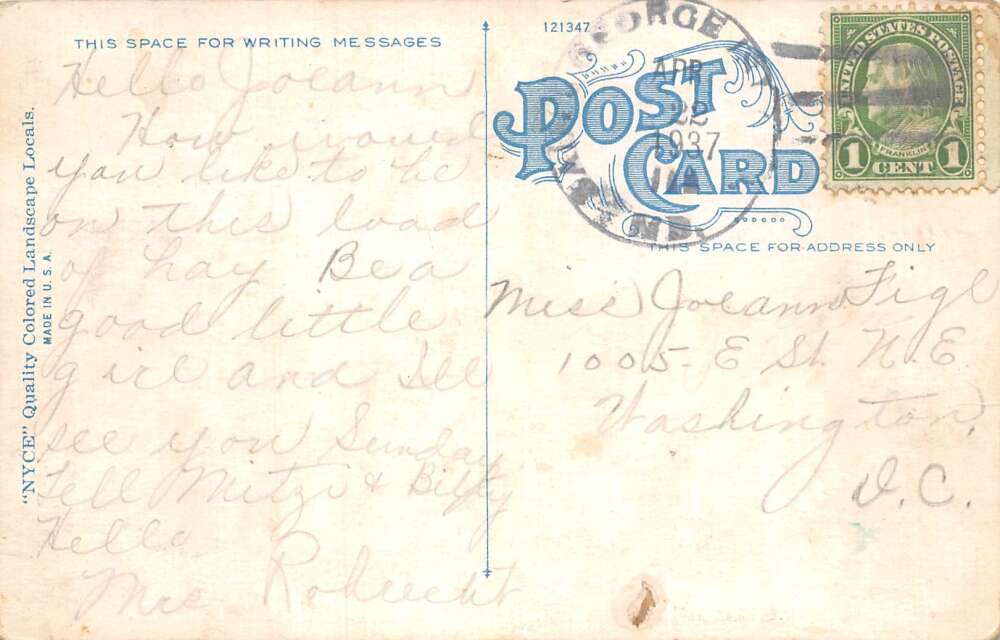 THIS SPACE FOR WRITING MESSAGES
Hello Joeann
How would
you like to be
on this load
of hay Be a
good little
girl and I'll
see you Sunday
Tell Mitzi & Billy
Hello
Mrs
"NYCE" Quality Colored Landscape Locals.
MADE IN U. S. A.
121347
POST CARD
GEORGE
APR
22
1937
MD.
UNITED STATES POSTAGE
FRANKLIN
1 CENT 1
THIS SPACE FOR ADDRESS ONLY
Miss Joeann Figl
1005- E St. N.E.
Washington,
D.C.